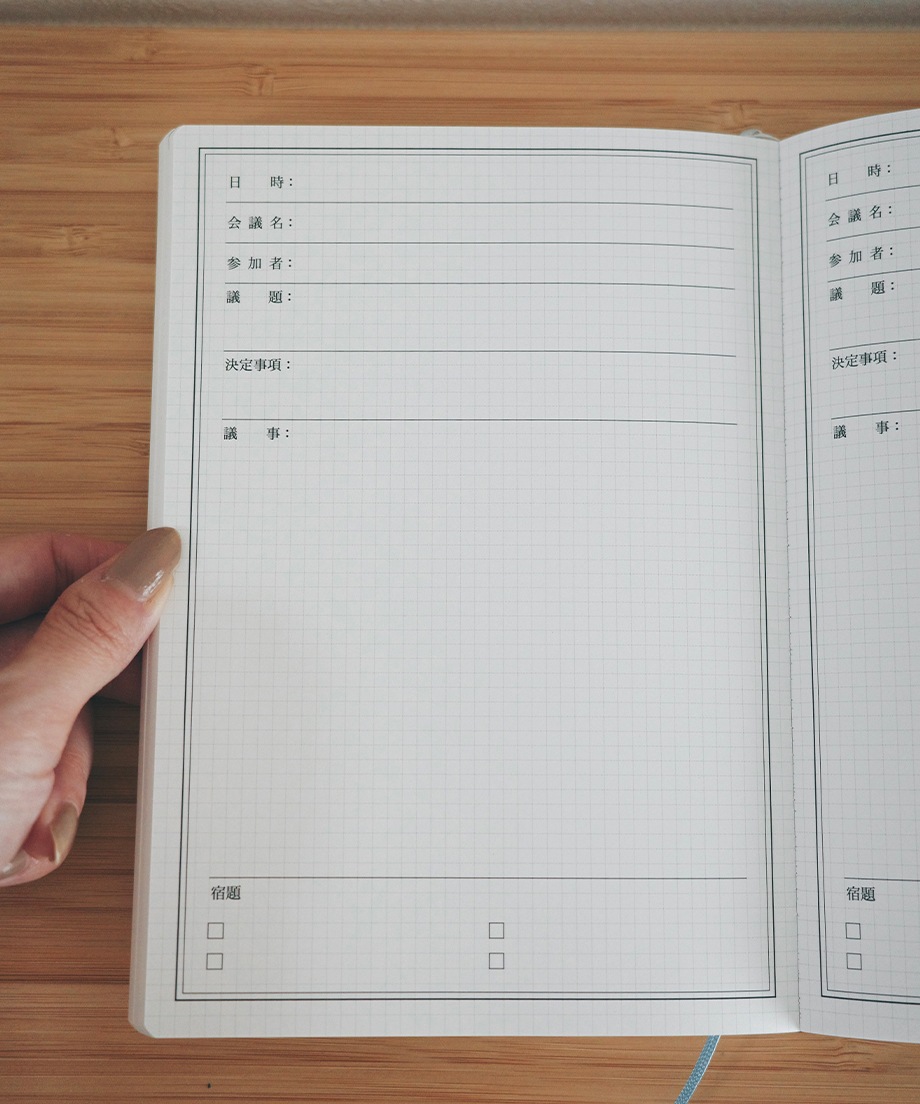 日　時：
会議名：
参加者：
議　題：
決定事項：
議　事：
宿題
□ □
□ □
日　時：
会議名：
参加者：
議　題：
決定事項：
議　事：
宿題
□
□